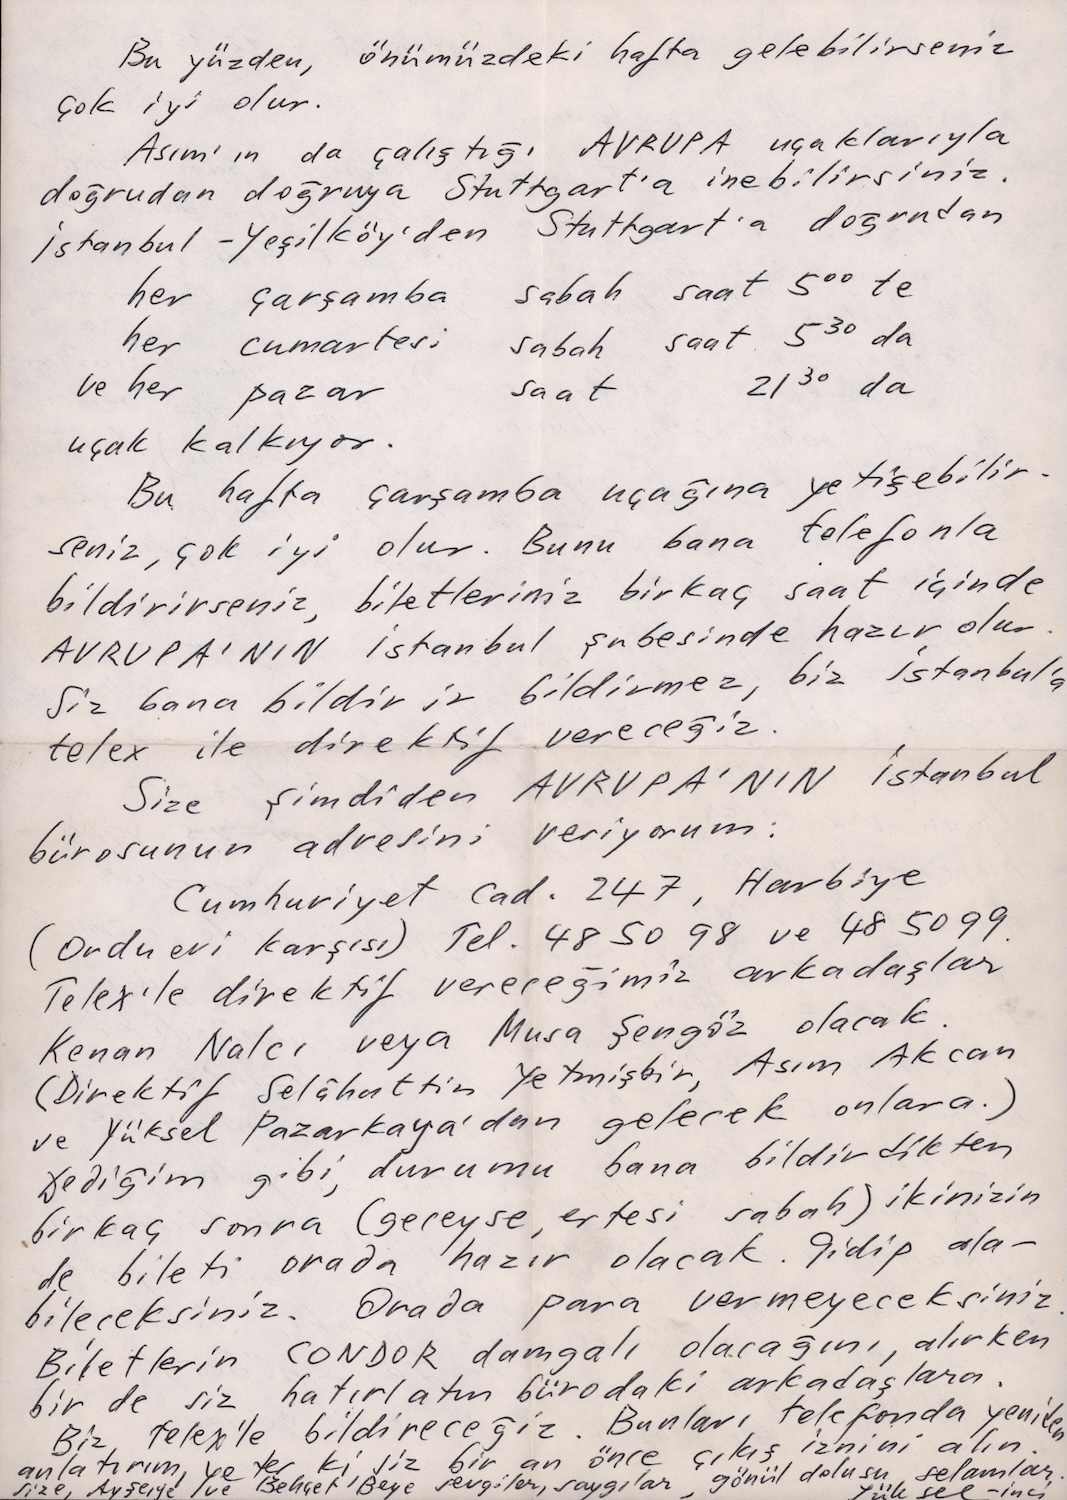 Bu yüzden, önümüzdeki hafta gelebilirseniz
çok iyi olur.
Asım'ın da çalıştığı AVRUPA uçaklarıyla
doğrudan doğruya Stuttgart'a inebilirsiniz.
İstanbul-Yeşilköy'den Stuttgart'a doğrudan
her çarşamba sabah saat 5⁰⁰ te
her cumartesi sabah saat 5³⁰ da
ve her pazar saat 21³⁰ da
uçak kalkıyor.
Bu hafta çarşamba uçağına yetişebilir-
seniz, çok iyi olur. Bunu bana telefonla
bildirirseniz, biletleriniz birkaç saat içinde
AVRUPA'NIN İstanbul şubesinde hazır olur.
Siz bana bildirir bildirmez, biz İstanbul'a
telex ile direktif vereceğiz.
Size şimdiden AVRUPA'NIN İstanbul
bürosunun adresini veriyorum:
Cumhuriyet Cad. 247, Harbiye
(Ordu evi karşısı) Tel. 48 50 98 ve 48 50 99.
Telex'le direktif vereceğimiz arkadaşlar
Kenan Nalcı veya Musa Şengöz olacak.
(Direktif Selâhattin Yetmişbir, Asım Akcan
ve Yüksel Pazarkaya'dan gelecek onlara.)
Dediğim gibi, durumu bana bildirdikten
birkaç sonra (geceyse, ertesi sabah) ikinizin
de bileti orada hazır olacak. Gidip ala-
bileceksiniz. Orada para vermeyeceksiniz.
Biletlerin CONDOR damgalı olacağını, alırken
bir de siz hatırlatın bürodaki arkadaşlara.
Biz telex'le bildireceğiz. Bunları telefonda yeniden
anlatırım, yeter ki siz bir an önce çıkış iznini alın.
Size, Ayşe'ye ve Behçet Beye sevgiler, saygılar, gönül dolusu selamlar.
Yüksel - İnci